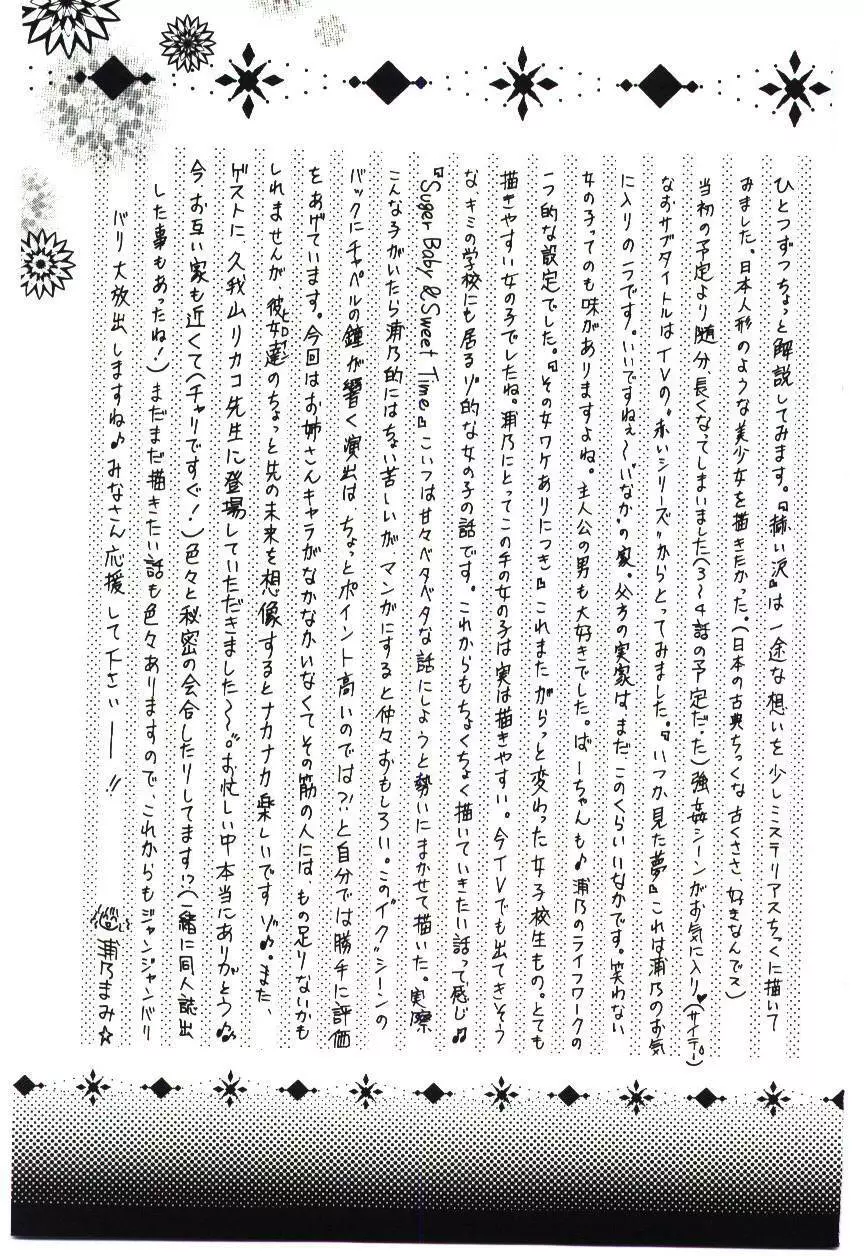 ひとつずつちょっと解説してみます。『赫い沢』は一途な想いを少しミステリアスちっくに描いて
みました。日本人形のような美少女を描きたかった。(日本の古典ちっくな古くささ、好きなんでス)
当初の予定より随分、長くなってしまいました(3〜4話の予定だった)強姦シーンがお気に入り♥(サイテー)
なおサブタイトルはTVの"赤いシリーズ"からとってみました。『いつか見た夢』これは浦乃のお気
に入りの一ラです。いいですねぇ〜"いなか"の家。父方の実家は、まだこのくらいいなかです。笑わない
女の子ってのも味がありますよね。主人公の男も大好きでした。ばーちゃんも♪浦乃のライフワークの
一つ的な設定でした。『その女ワケありにつき』これまたがらっと変わった女子校生もの。とても
描きやすい女の子でしたね。浦乃にとってこの手の女の子は実は描きやすい。今TVでも出てきそう
な、キミの学校にも居るゾ的な女の子の話です。これからもちょくちょく描いていきたい話って感じ♪
『Suger Baby & Sweet Time』こいつは甘々ベタベタな話にしようと勢いにまかせて描いた。実際
こんな子がいたら浦乃的にはちょい苦しいがマンガにすると仲々おもしろい。この"イク"シーンの
バックにチャペルの鐘が響く演出は、ちょっとポイント高いのでは?!と自分では勝手に評価
をあげています。今回はお姉さんキャラがなかなかいなくてその筋の人には、もの足りないかも
しれませんが、彼女達のちょっと先の未来を想像するとナカナカ楽しいですゾ♪。また、
ゲストに久我山リカコ先生に登場していただきました〜〜。お忙しい中本当にありがとう♪
今お互い家も近くて(チャリですぐ!)色々と秘密の会合したりしてます!?(一緒に同人誌出
した事もあったね!)まだまだ描きたい話も色々ありますので、これからもジャンジャンバリ
バリ大放出しますね♪みなさん応援して下さいーー!!
浦乃まみ☆